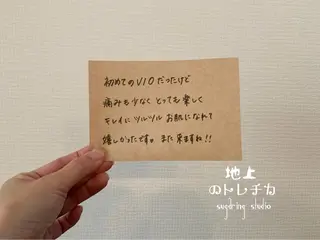 初めてのVIOだったけど
痛みも少なく とっても楽しく
キレイに ツルツル お肌になれて
嬉しかったです。また来ますね!!
地上
のトレチカ
sugaring studio